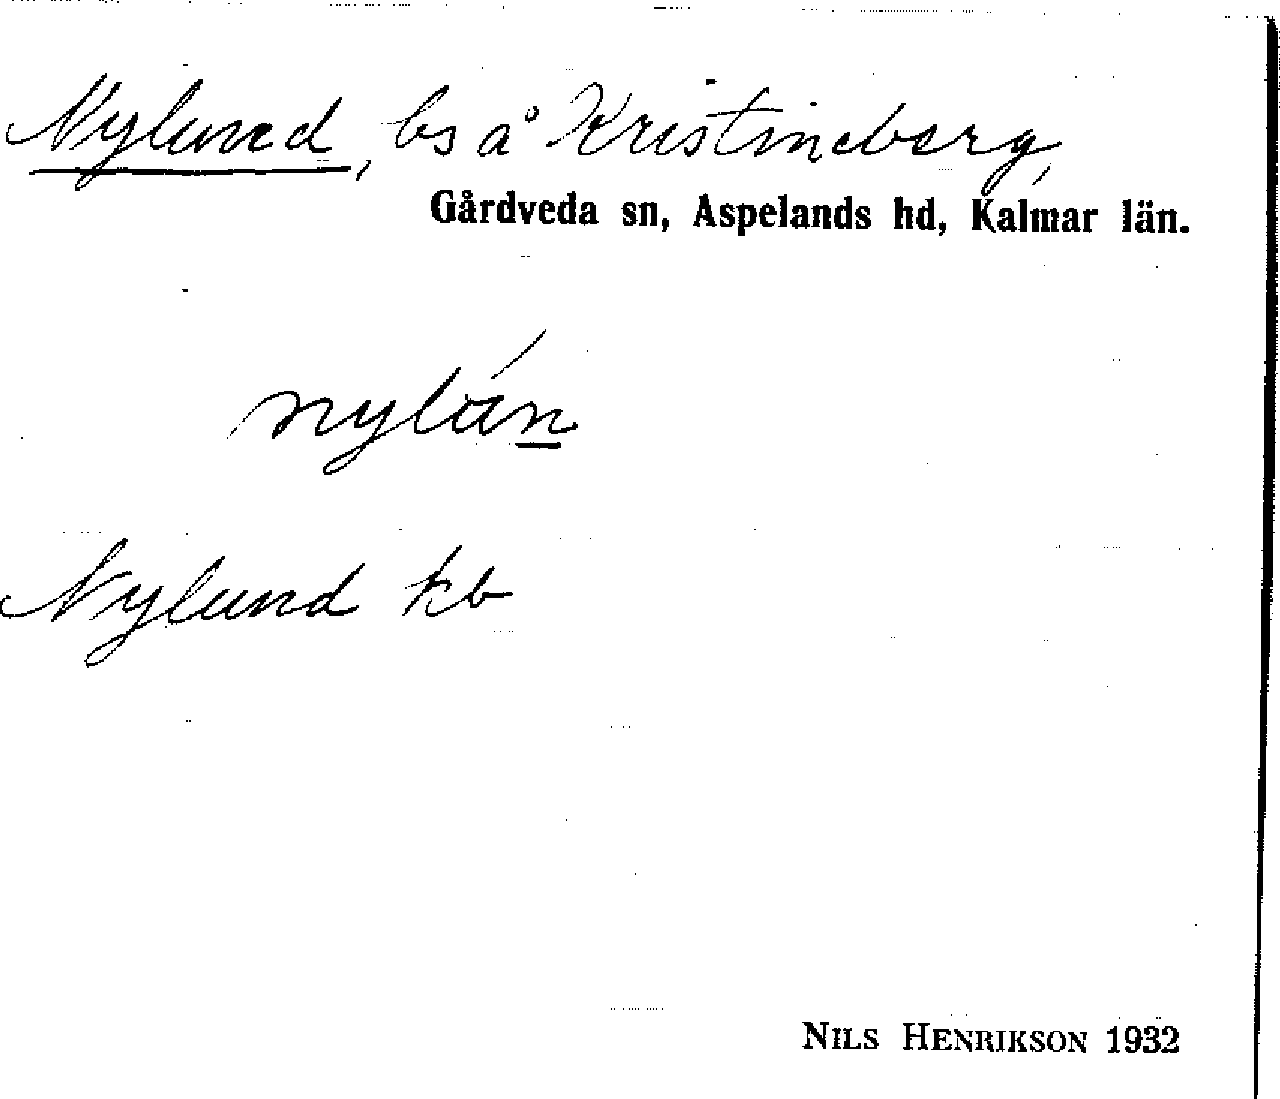 Nylund, bs å Kristineberg,
Gårdveda sn, Aspelands hd, Kalmar län.
nylán
Nylund kb
NILS HENRIKSON 1932